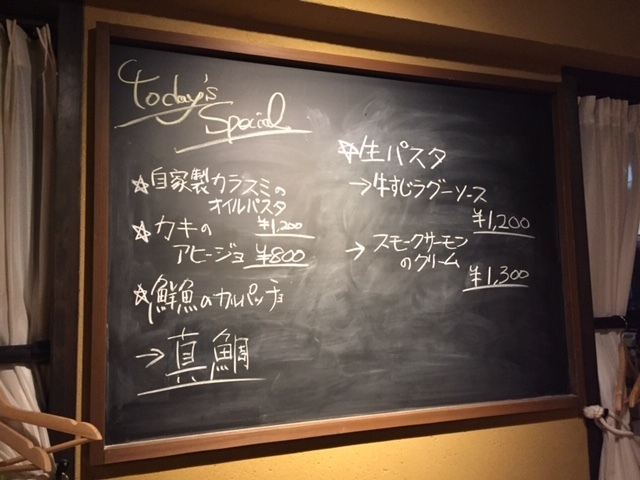 Today's
Special
☆自家製カラスミの
オイルパスタ
¥1,200
☆カキの
アヒージョ ¥800
☆鮮魚のカルパッチョ
→真鯛
☆生パスタ
→牛すじラグーソース
¥1,200
→スモークサーモン
のクリーム
¥1,300